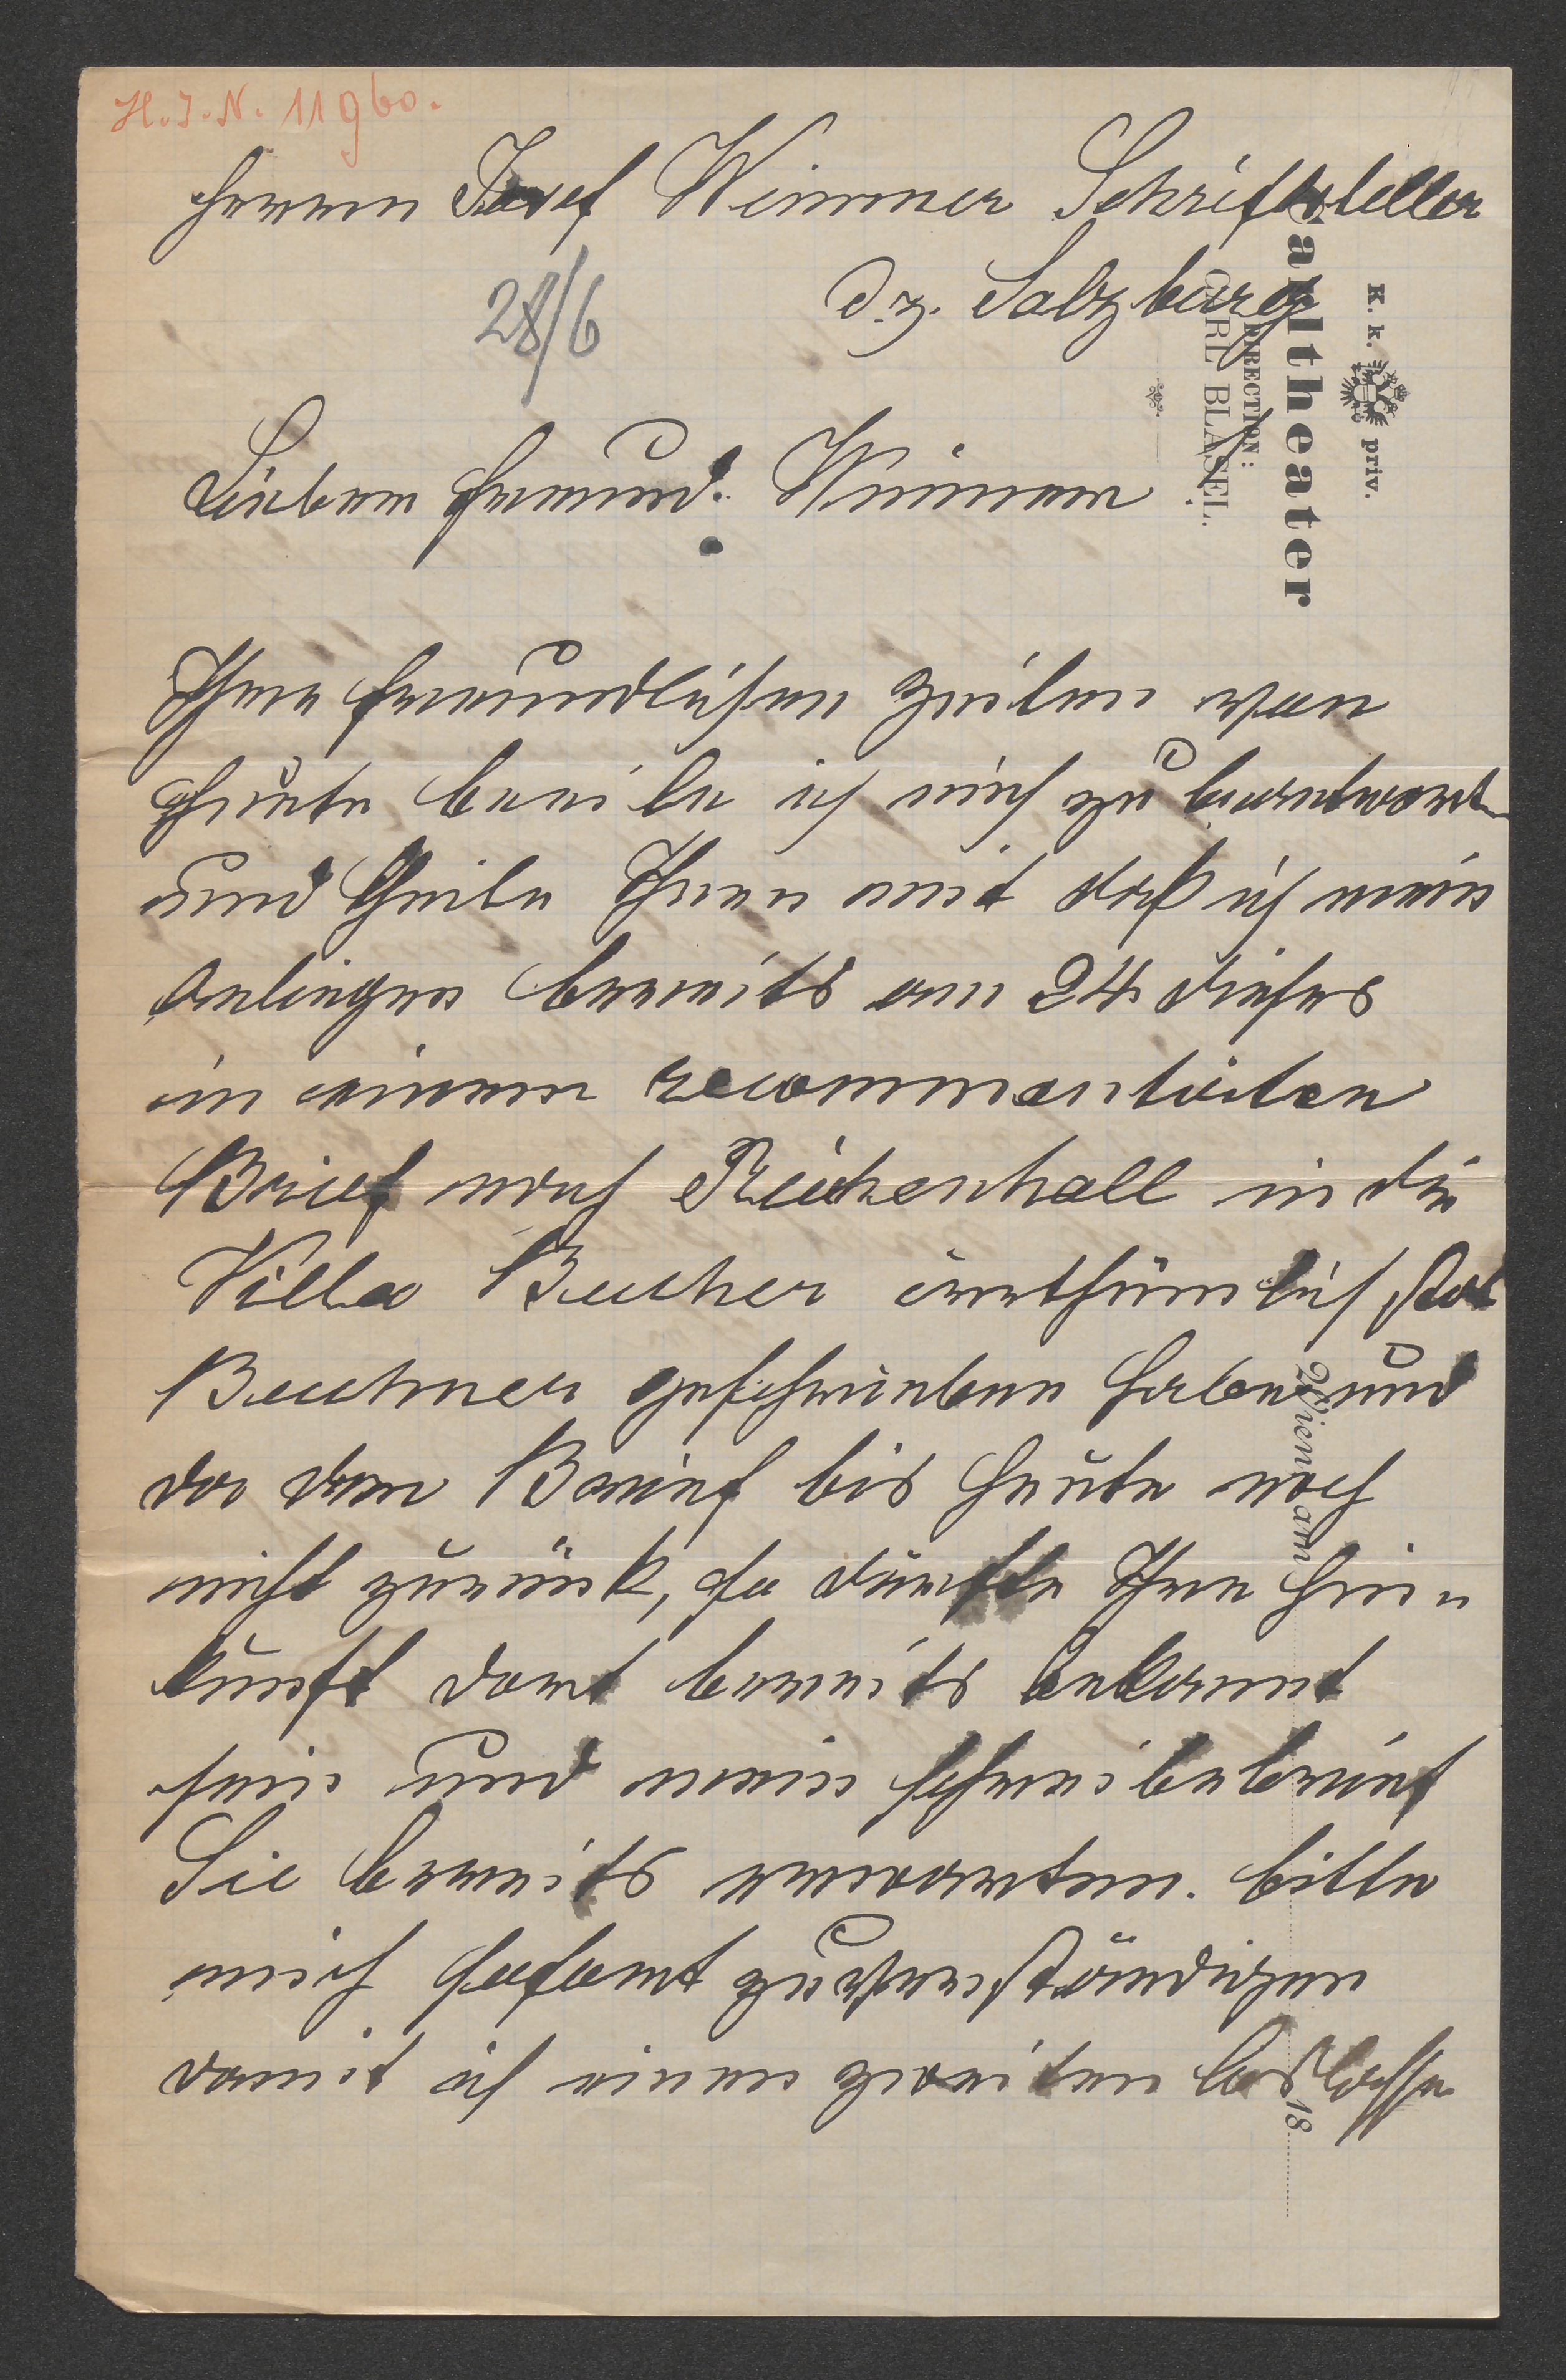 H.I.N. 11960.
Herrn Josef Wimmer Schriftsteller
d. z. Salzburg
28/6
K. k. priv.
Carltheater
DIRECTION:
CARL BLASEL.
Lieber Freund! Wimmer
Ihre freundlichen Zeilen von
Heute beeile ich mich zu beantwort
und theile Ihnen mit daß ich mein
Anliegen bereits am 24 dieses
in einem recommantirten
Brief nach Reichenhall in die
Villa Bucher irrthümlich statt
Buchner geschrieben habe und
da der Brief bis Heute noch
nicht zurück, so dürfte Ihre Hin=
kunft dort bereits bekannt
sein und mein Schreibebrief
Sie bereits erwarten. bitte
mich sofort zu verständigen
damit ich einen zweiten
Wien am 18